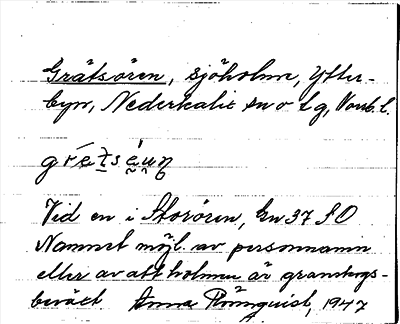 Grätsören, sjöholme, Ytter-
byn, Nederkalix sn o tg, Norrb. l.
Vid en i Storören, Gn 37 SO
Namnet möjl. av personnamn
eller av att holmen är granskogs-
beväxt Anna Rönnquist, 1947